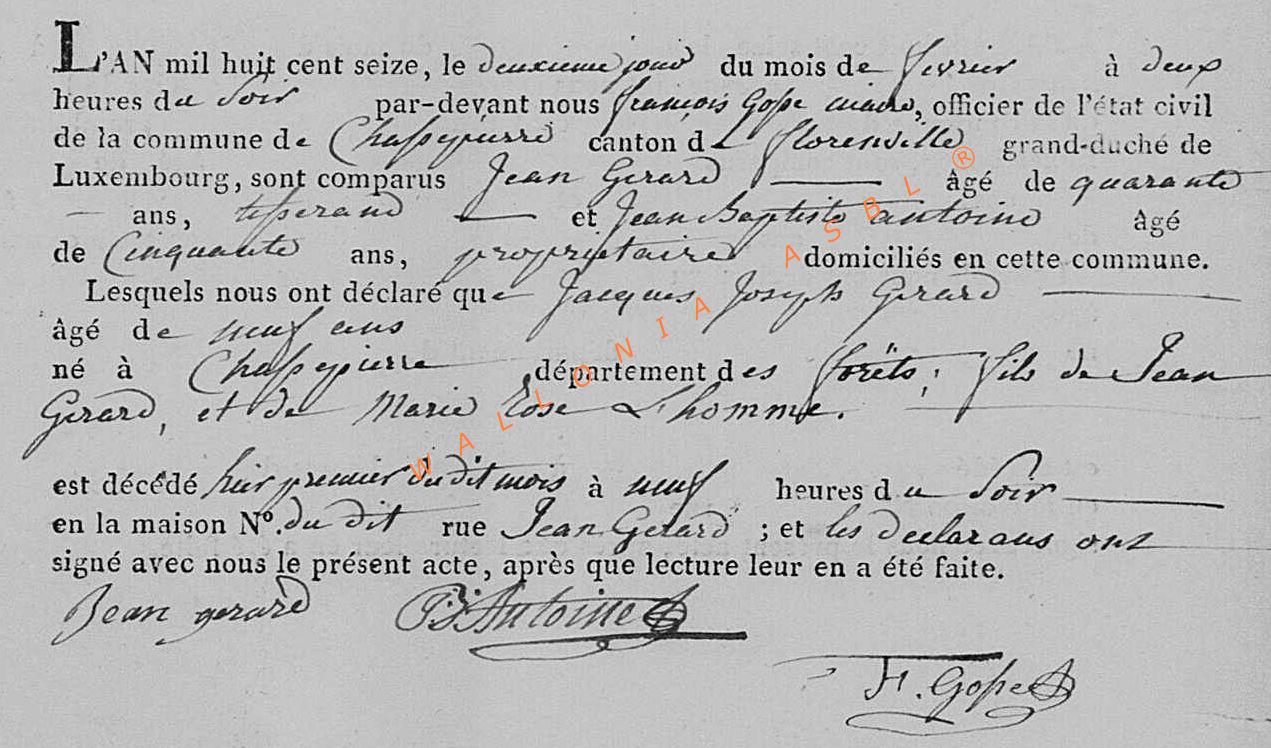 L'AN mil huit cent seize, le deuxieme jour du mois de fevrier à deux
heures du Soir par-devant nous françois Gosse maire, officier de l'état civil
de la commune de Chassepierre canton de florenville grand-duché de
Luxembourg, sont comparus Jean Gerard âgé de quarante
ans, tisserand et Jean Baptiste antoine âgé
de Cinquante ans, proprietaire domiciliés en cette commune.
Lesquels nous ont déclaré que Jacques Joseph Gerard
âgé de neuf ans
né à Chassepierre département des forêts, fils de Jean
Gerard, et de Marie Rose L'homme.
est décédé hier premier du dit mois à neuf heures du Soir
en la maison N°. du dit rue Jean Gerard ; et les declarans ont
signé avec nous le présent acte, après que lecture leur en a été faite.
Jean gerard J.B. Antoine
F. Gosse
WALLONIA ASBL ®